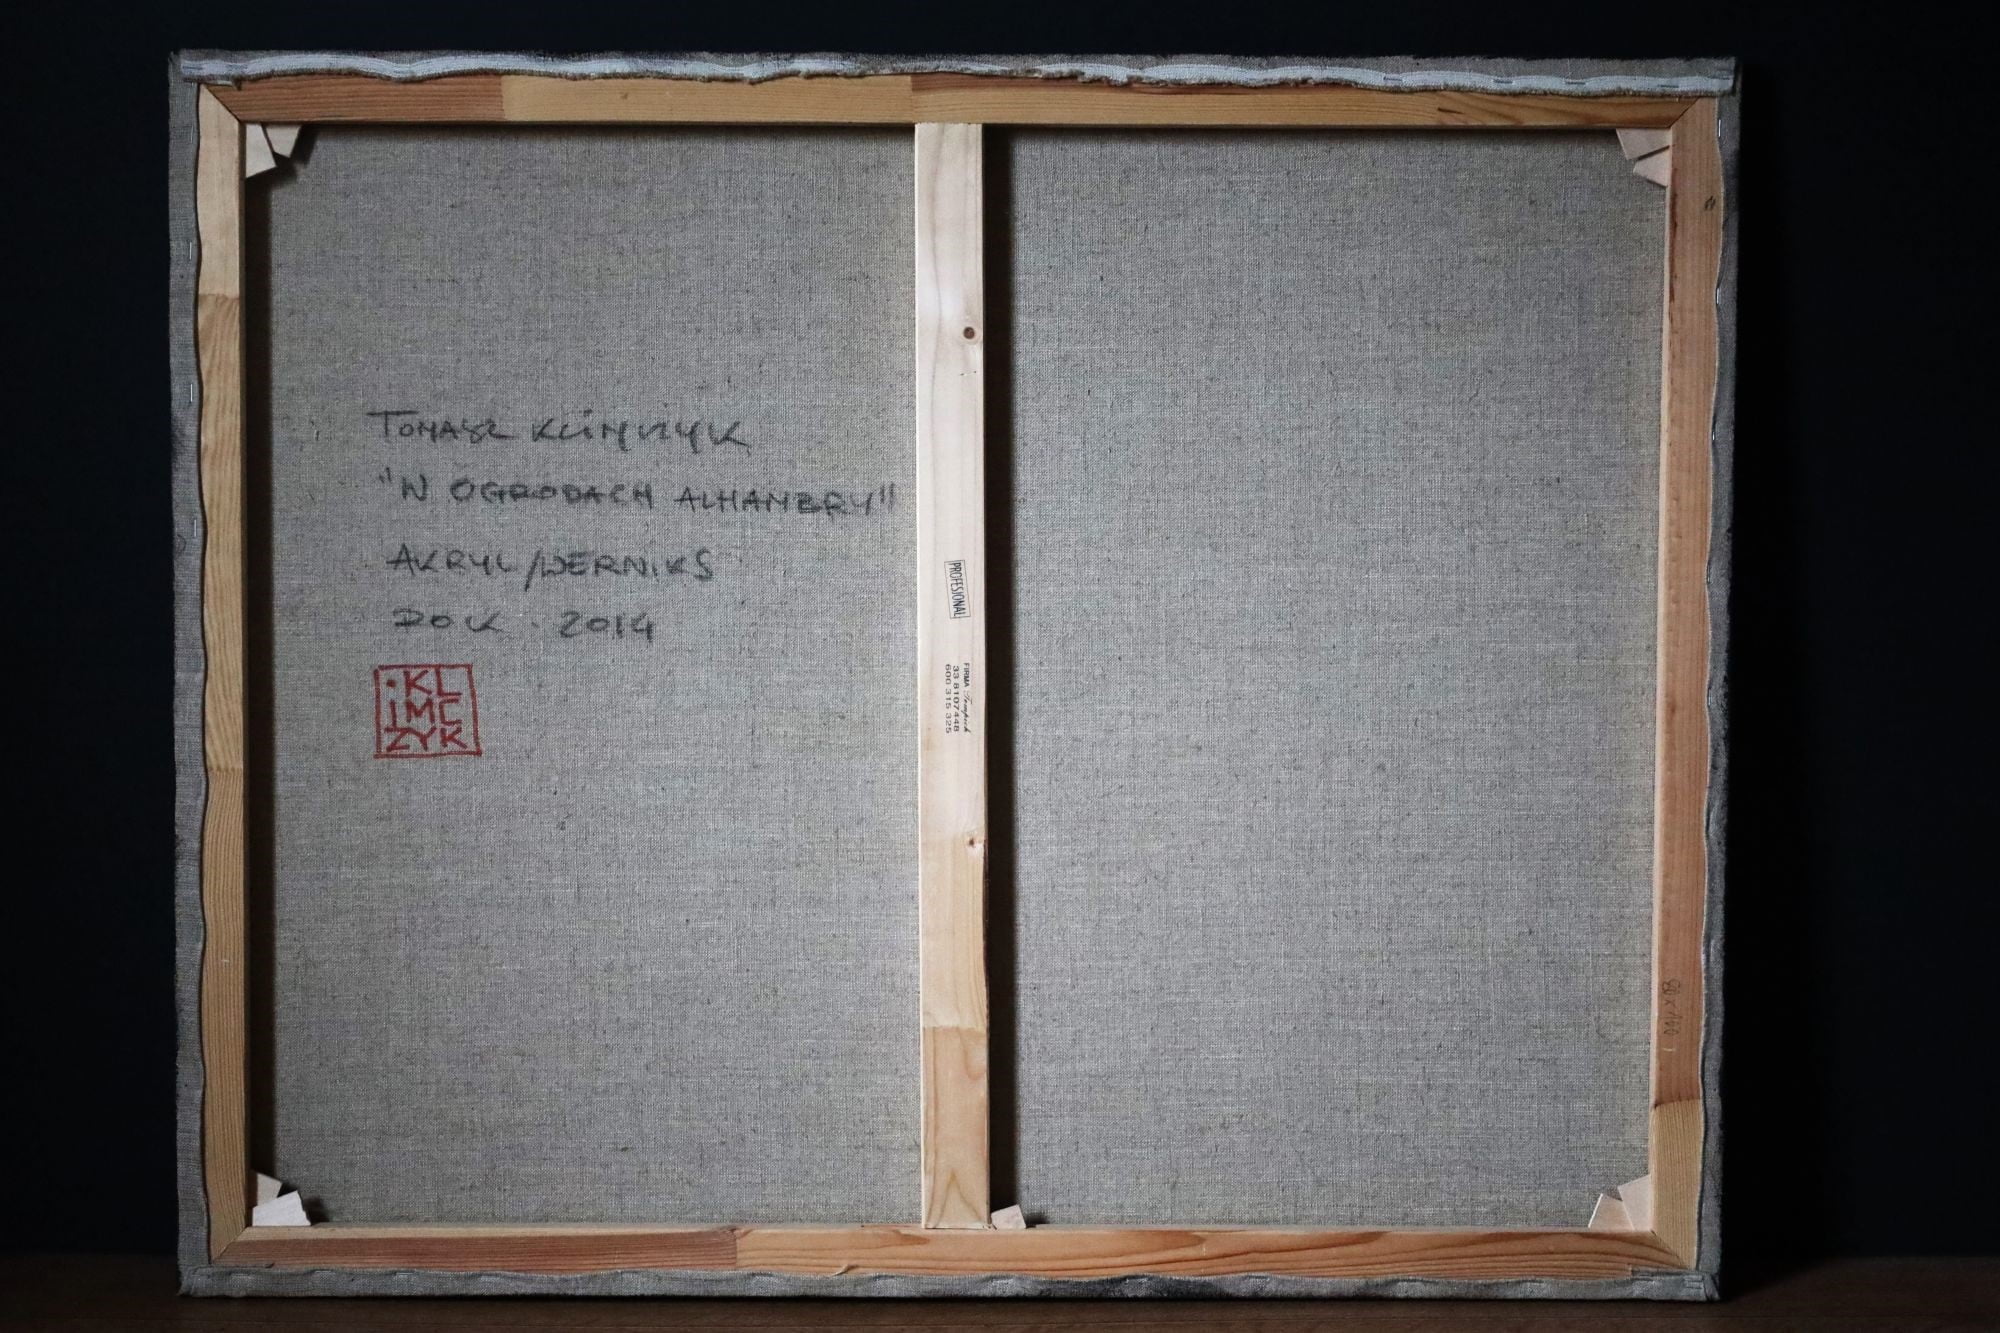 TOMASZ KLIMCZYK
"W OGRODACH ALHAMBRY"
AKRYL/WERNIKS
ROK . 2014
•KL
IMC
ZYK
PROFESIONAL
FIRMA
33 8107448
600 315 325
80 x 100